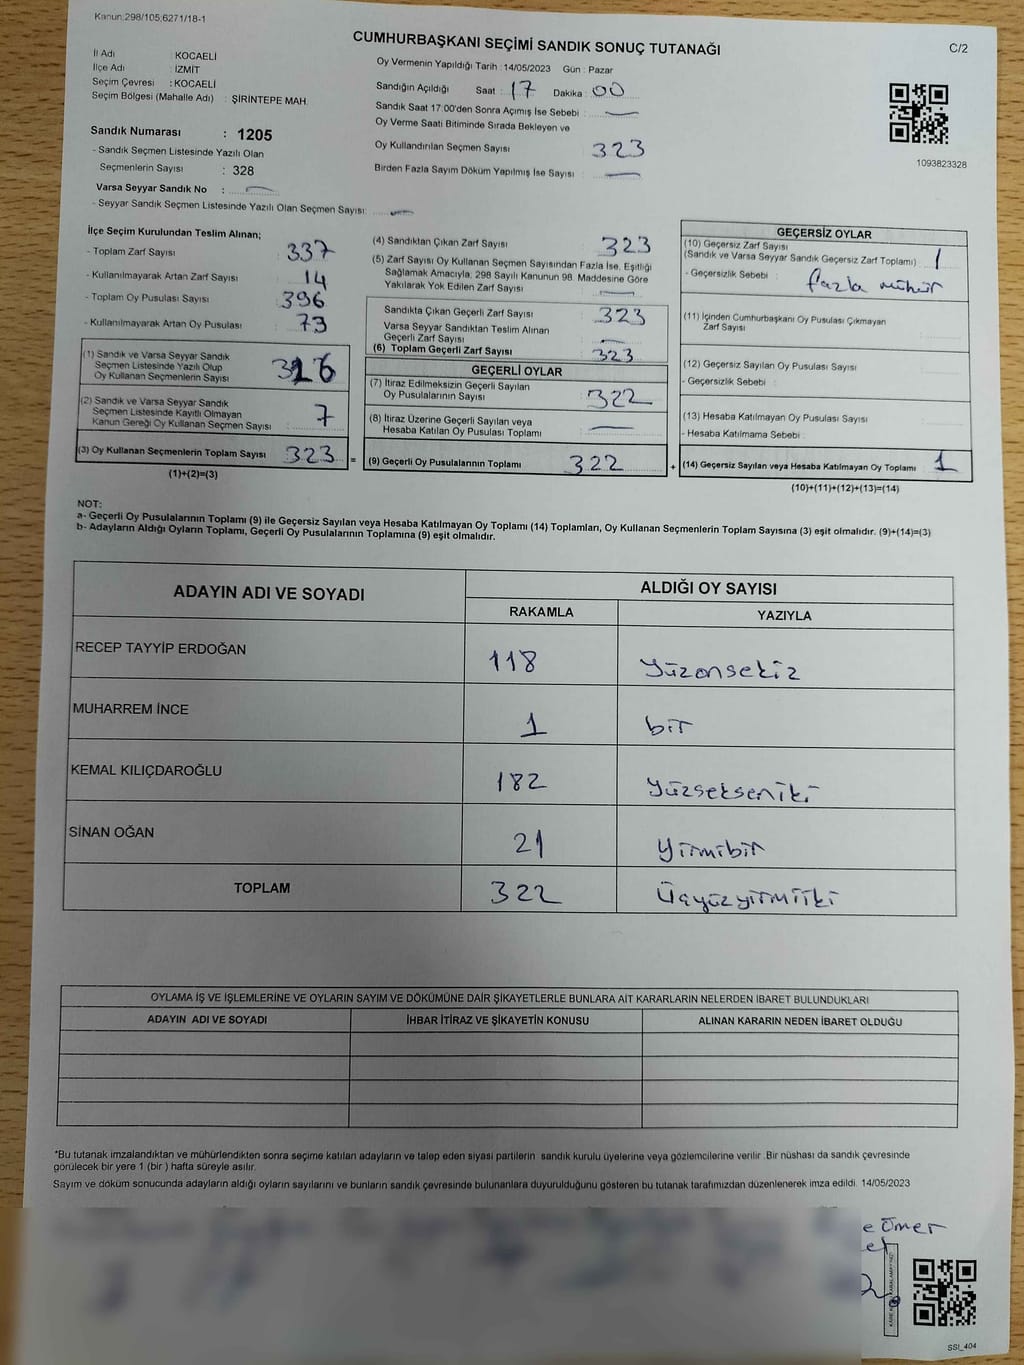 Kanun:298/105,6271/18-1
CUMHURBAŞKANI SEÇİMİ SANDIK SONUÇ TUTANAĞI
C/2
İl Adı : KOCAELİ
İlçe Adı : İZMİT
Seçim Çevresi : KOCAELİ
Seçim Bölgesi (Mahalle Adı) : ŞİRİNTEPE MAH.
Sandık Numarası : 1205
- Sandık Seçmen Listesinde Yazılı Olan
Seçmenlerin Sayısı : 328
Varsa Seyyar Sandık No :
- Seyyar Sandık Seçmen Listesinde Yazılı Olan Seçmen Sayısı:
Oy Vermenin Yapıldığı Tarih : 14/05/2023 Gün : Pazar
Sandığın Açıldığı Saat : 17 Dakika : 00
Sandık Saat 17:00'den Sonra Açımış İse Sebebi :
Oy Verme Saati Bitiminde Sırada Bekleyen ve
Oy Kullandırılan Seçmen Sayısı 323
Birden Fazla Sayım Döküm Yapılmış İse Sayısı :
1093823328
İlçe Seçim Kurulundan Teslim Alınan;
- Toplam Zarf Sayısı : 337
- Kullanılmayarak Artan Zarf Sayısı : 14
- Toplam Oy Pusulası Sayısı : 396
- Kullanılmayarak Artan Oy Pusulası : 73
(1) Sandık ve Varsa Seyyar Sandık
Seçmen Listesinde Yazılı Olup
Oy Kullanan Seçmenlerin Sayısı 316
(2) Sandık ve Varsa Seyyar Sandık
Seçmen Listesinde Kayıtlı Olmayan
Kanun Gereği Oy Kullanan Seçmen Sayısı : 7
(3) Oy Kullanan Seçmenlerin Toplam Sayısı 323
(1)+(2)=(3)
=
(4) Sandıktan Çıkan Zarf Sayısı 323
(5) Zarf Sayısı Oy Kullanan Seçmen Sayısından Fazla İse, Eşitliği
Sağlamak Amacıyla, 298 Sayılı Kanunun 98. Maddesine Göre
Yakılarak Yok Edilen Zarf Sayısı
Sandıkta Çıkan Geçerli Zarf Sayısı : 323
Varsa Seyyar Sandıktan Teslim Alınan
Geçerli Zarf Sayısı
(6) Toplam Geçerli Zarf Sayısı 323
GEÇERLİ OYLAR
(7) İtiraz Edilmeksizin Geçerli Sayılan
Oy Pusulalarının Sayısı : 322
(8) İtiraz Üzerine Geçerli Sayılan veya
Hesaba Katılan Oy Pusulası Toplamı :
(9) Geçerli Oy Pusulalarının Toplamı 322
+
GEÇERSİZ OYLAR
(10) Geçersiz Zarf Sayısı
(Sandık ve Varsa Seyyar Sandık Geçersiz Zarf Toplamı) 1
- Geçersizlik Sebebi : fazla mühür
(11) İçinden Cumhurbaşkanı Oy Pusulası Çıkmayan
Zarf Sayısı
(12) Geçersiz Sayılan Oy Pusulası Sayısı
- Geçersizlik Sebebi :
(13) Hesaba Katılmayan Oy Pusulası Sayısı
- Hesaba Katılmama Sebebi :
(14) Geçersiz Sayılan veya Hesaba Katılmayan Oy Toplamı 1
(10)+(11)+(12)+(13)=(14)
NOT:
a- Geçerli Oy Pusulalarının Toplamı (9) ile Geçersiz Sayılan veya Hesaba Katılmayan Oy Toplamı (14) Toplamları, Oy Kullanan Seçmenlerin Toplam Sayısına (3) eşit olmalıdır. (9)+(14)=(3)
b- Adayların Aldığı Oyların Toplamı, Geçerli Oy Pusulalarının Toplamına (9) eşit olmalıdır.
ADAYIN ADI VE SOYADI ALDIĞI OY SAYISI
RAKAMLA YAZIYLA
RECEP TAYYİP ERDOĞAN 118 Yüzonsekiz
MUHARREM İNCE 1 bir
KEMAL KILIÇDAROĞLU 182 Yüzsekseniki
SİNAN OĞAN 21 Yirmibir
TOPLAM 322 Üçyüzyirmiiki
OYLAMA İŞ VE İŞLEMLERİNE VE OYLARIN SAYIM VE DÖKÜMÜNE DAİR ŞİKAYETLERLE BUNLARA AİT KARARLARIN NELERDEN İBARET BULUNDUKLARI
ADAYIN ADI VE SOYADI İHBAR İTİRAZ VE ŞİKAYETİN KONUSU ALINAN KARARIN NEDEN İBARET OLDUĞU
*Bu tutanak imzalandıktan ve mühürlendikten sonra seçime katılan adayların ve talep eden siyasi partilerin sandık kurulu üyelerine veya gözlemcilerine verilir .Bir nüshası da sandık çevresinde
görülecek bir yere 1 (bir ) hafta süreyle asılır.
Sayım ve döküm sonucunda adayların aldığı oyların sayılarını ve bunların sandık çevresinde bulunanlara duyurulduğunu gösteren bu tutanak tarafımızdan düzenlenerek imza edildi. 14/05/2023
e Ömer
et
SSI_404